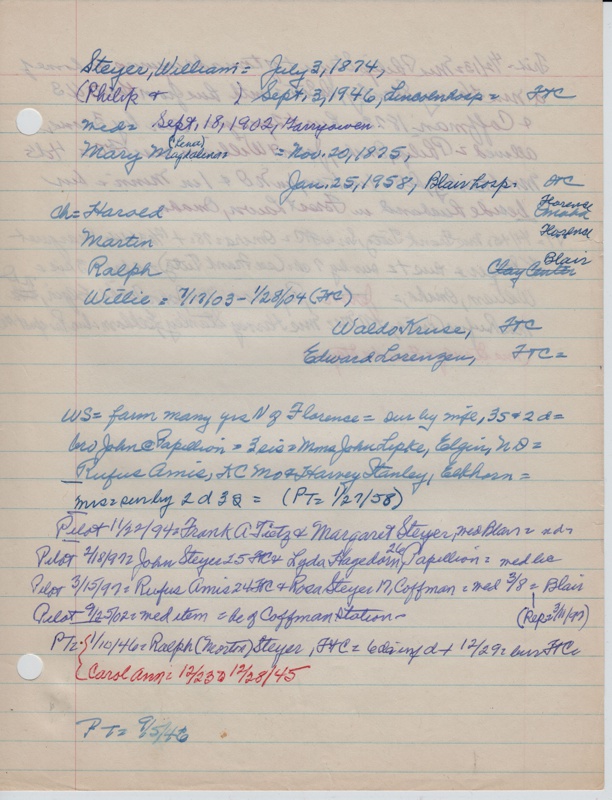 Steyer, William = July 3, 1874,
(Philip + ) Sept. 3, 1946, Lincoln hosp = FtC
med = Sept. 18, 1902, Harry owen =
Mary Magdalena = (Lena) = Nov. 20, 1875,
Jan. 25, 1958, Blair hosp = FtC
ch = Harold Omaha Florence
Martin Florence
Ralph Clay Center Blair
Willie = 7/18/03 - 1/28/04 (FtC)
Waldo Kruse, FtC
Edward Lorenzen, FtC =
WS = farm many yrs N of Florence = sur by wife, 3 s + 2 d =
bro John @ Papillion = 3 sis = Mmes John Lipke, Elgin, ND =
Rufus Amis, KC Mo + Harvey Stanley, Elkhorn =
mrs = sur by 2 d 3 s = (PT = 1/27/58)
Pilot 11/22/94 = Frank A Tietz + Margaret Steyer, med Blair =
Pilot 2/18/97 = John Steyer 25 FtC + Lyda Hagedorn, 26 Papillion = med lic
Pilot 3/15/97 = Rufus Amis 24 FtC + Rosa Steyer 17, Coffman = med 3/8 = Blair
Pilot 9/25/02 = med item = he of Coffman Station - (Rep = 3/11/97)
PT = { 1/10/46 = Ralph (Morton) Steyer, FtC = 6 day inf d + 12/29 = bur FtC =
{ Carol Ann = 12/23 to 12/28/45
PT = 9/5/46